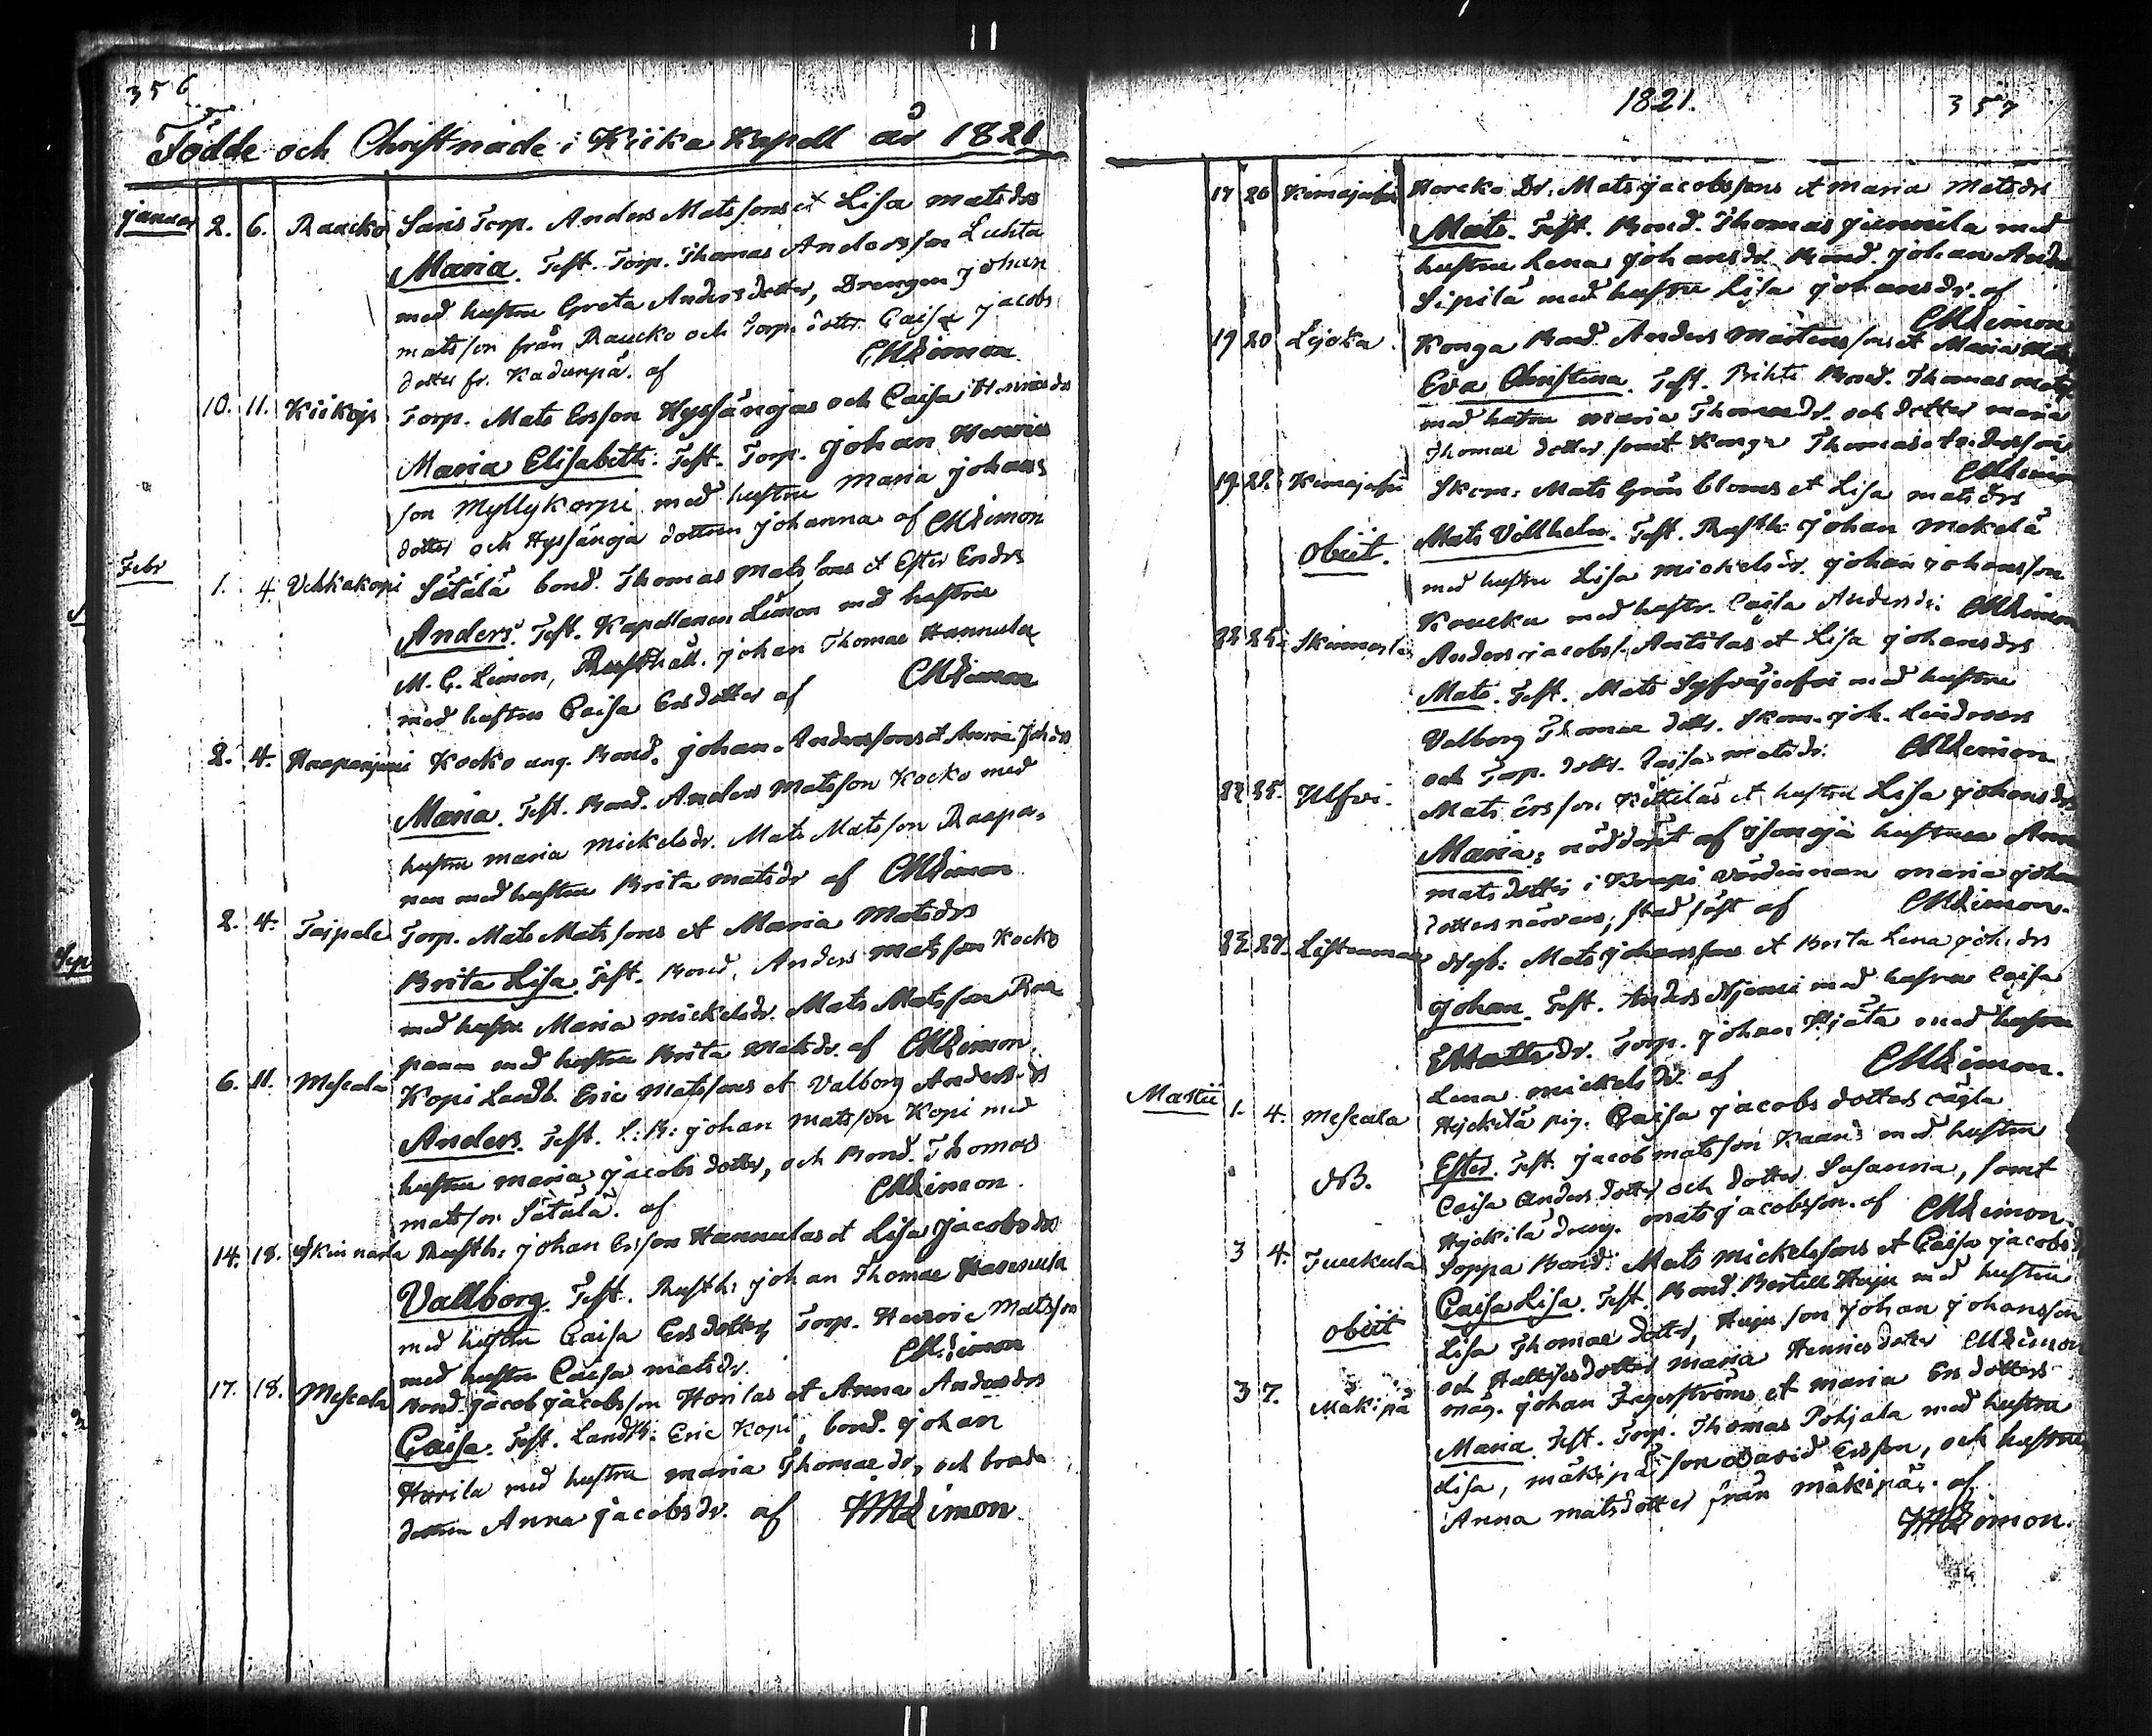 356
Födde och Christnade i Kiika Kapell år 1821
januar 2. 6. Raucko Saris Torp. Anders Matssons et Lisa matsdrs
Maria. Test. Torp. Thomas Andersson Luhta
med hustru Greta Andersdotter, Drengen Johan
matsson från Raucko och Torp. dotter Caisa jacobs
dotter fr. Kadenpä. af CMLimon
10. 11. Kiikojs Torp. Mats Ersson Hyssänojas och Caisa Henricsdrs
Maria Elisabeth. Test. Torp. johan Henrics
son Myllykorpi med hustru Maria johans
dotter och Hyssänoja dottren johanna af CMLimon
Febr 1. 4. Vehkakopi Sätälä bond. Thomas Matssons et Ester Ersdrs
Anders. Test. Kapellanen Limon med hustru
M. G. Limon, Rusthåll. johan Thomae Hannula
med hustru Caisa Ersdotter af CMLimon
2. 4. Haapaniemi Kocko ung. Bond. johan Anderssons et Maria Joh.drs
Maria. Test. Bond. Anders Matsson Kocko med
hustru maria mickelsdr. Mats Matsson Raapa-
nen med hustru Brita matsdr af CMLimon
2. 4. Taipale Torp. Mats Matssons et Maria Matsdrs
Brita Lisa. Test. Bond. Anders matsson Kocko
med hustru Maria mickelsdr. Mats Matsson Raa
panen med hustru Brita Matsdr. af CMLimon.
6. 11. Mescala Kopi Landb. Eric Matssons et Valborg Andersdrs
Anders. Test. L:B: johan matsson Kopi med
hustru maria jacobs dotter, och Bond. Thomas
matsson Sätälä. af CMLimon.
14. 18. Skinnarla Rusth: johan Ersson Hannulas et Lisa jacobsdrs
Vallborg. Test. Rusth: johan Thomae Hannula
med hustru Caisa Ersdotter, Torp. Henric Matsson
med hustru Caisa matsdr. CMLimon
17. 18. Mescala Bond. jacob jacobsson Horilas et Anna Andersdrs
Caisa. Test. Landb: Eric Kopi, bond. johan
Horila med hustru maria Thomaedr, och broders
dottren Anna jacobsdr. af CMLimon.
1821. 357
17 20 Kimajärfvi Horcko Dr. Mats jacobssons et maria matsdrs
Mats. Test. Bond. Thomas junnila med
hustru Lena johansdr. Bond. johan Anders
Sipilä med hustru Lisa johansdr. af
CMLimon
19 20 Lejoka. Konga Bond. Anders Mårtenssons et Maria Mats
Eva Christina. Test. Prihti Bond. Thomas mats
med hustru maria Thomaedr. och dotter maria
Thomae dotter samt Konga Thomas Andersson
CMLimon
19 21. Kimajerfvi Skom: Mats Grönbloms et Lisa matsdrs
Obiit. Mats Villhelm. Test. Rusth: johan Mekelä
med hustru Lisa mickelsdr. johan johansson
Kraucka med hustr. Caisa Andersdr. CMLimon
22 25. Skinnarla Anders jacobs. Antilas et Lisa johansdrs
Mats. Test. Mats Syfväjerfvi med hustru
Valborg Thomae dottr. Skom. joh. Lindroos
och Torp. dottr. Caisa matsdr. CMLimon.
22 25. Ulfsi. Mats Ersson Kittiläs et hustru Lisa johansdrs
Maria; nöddöpt af Isonoja hustrun Anna
mats dotter i Krapi värdinnan maria johans
dotters närvaro, stadfäst af CMLimon.
22 27. Listenmaa Nyb: Mats johanssons et Brita Lena joh.drs
Johan. Test. Anders Njemi med hustru Caisa
Mattsdr. Torp. johan Pijata med hustru
Lena mickelsdr. af CMLimon.
Martii 1. 4. Mescala Hejckilä pig. Caisa jacobs dotters oägta
NB. Ester. Test. jacob matsson Kaari med hustru
Caisa Anders dotter och dotter Susanna, samt
Hejckilä dreng. mats jacobsson. af CMLimon.
3 4. Juckula Soppa Bond: Mats Mickelssons et Caisa jacobsd
obiit Caisa Lisa. Test. Bond. Bertill Huju med hustru
Lisa Thomae dotter, Huju son johan johansson
och dotter maria Henricsdoter CMLimon
3 7. Mäkipä måg. johan Fagerströms et maria Ersdotters
Maria. Test. Torp. Thomas Pohjala med hustru
Lisa, mäkipä son David Ersson, och hustru
Anna matsdotter från mäkipä. af
CMLimon.